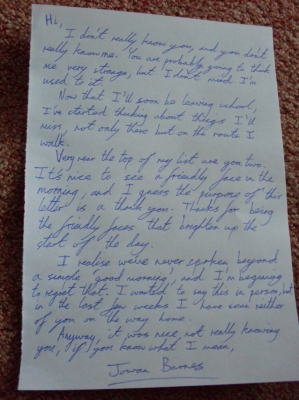 Hi,
I don't really know you, and you don't
really know me. You are probably going to think
me very strange, but I don't mind. I'm
used to it.
Now that I'll soon be leaving school,
I've started thinking about things I'll
miss, not only there but on the route I
walk.
Very near the top of my list are you two.
It's nice to see a friendly face in the
morning, and I guess the purpose of this
letter is a thank you. Thanks for being
the friendly faces that brighten up the
start of the day.
I realise we've never spoken beyond
a simple 'good morning', and I'm beginning
to regret that. I wanted to say this in person, but
in the last few weeks I have seen neither
of you on the way home.
Anyway, it was nice not really knowing
you, if you know what I mean,